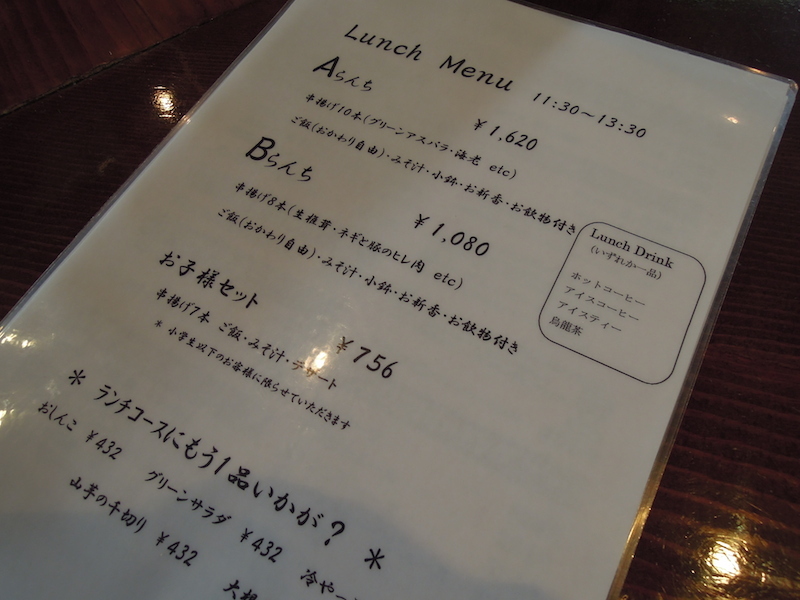 Lunch Menu 11:30〜13:30
Aらんち ￥1,620
串揚げ10本(グリーンアスパラ・海老 etc)
ご飯(おかわり自由)・みそ汁・小鉢・お新香・お飲物付き
Bらんち ￥1,080
串揚げ8本(生椎茸・ネギと豚のヒレ肉 etc)
ご飯(おかわり自由)・みそ汁・小鉢・お新香・お飲物付き
お子様セット ￥756
串揚げ7本 ご飯・みそ汁・デザート
* 小学生以下のお客様に限らせていただきます
Lunch Drink
(いずれか一品)
ホットコーヒー
アイスコーヒー
アイスティー
烏龍茶
* ランチコースにもう1品いかが? *
おしんこ ￥432 グリーンサラダ ￥432 冷やっ
山芋の千切り ￥432 大根